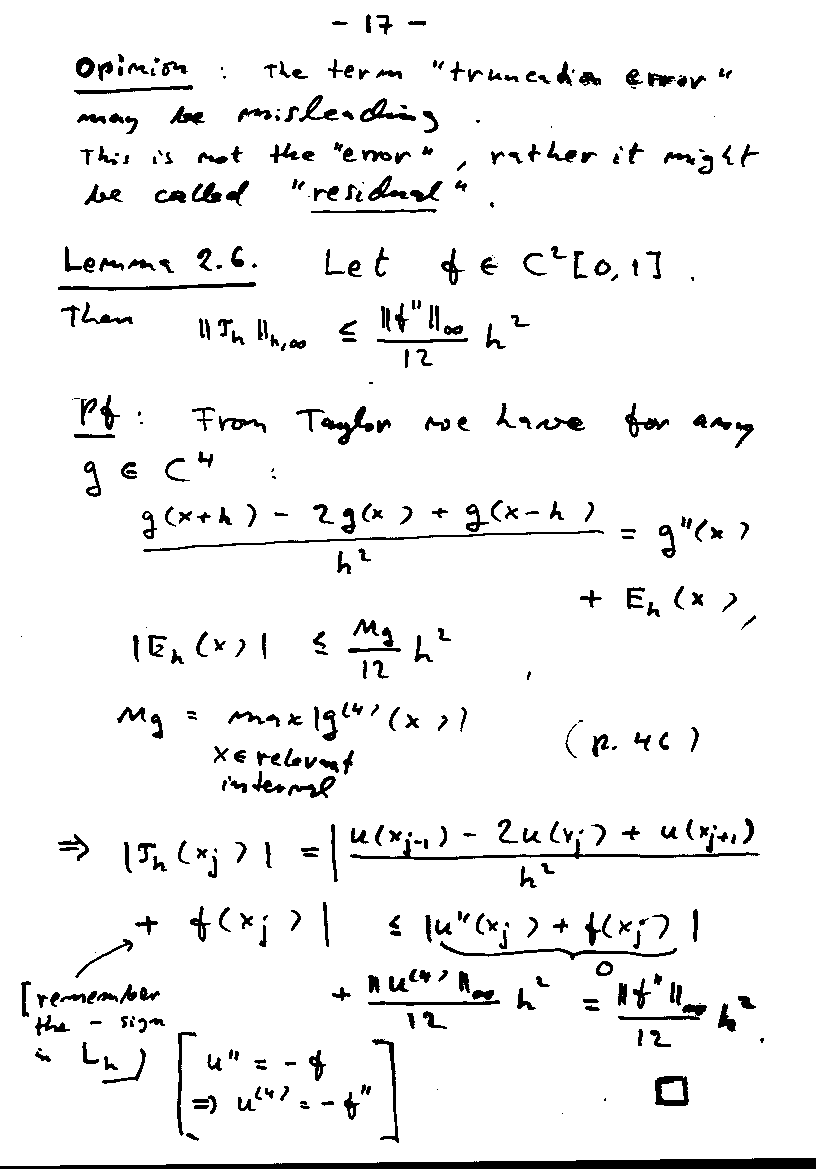 - 17 -
Opinion : The term "truncation error"
may be misleading .
This is not the "error", rather it might
be called "residual".
Lemma 2.6. Let f ∈ C²[0,1] .
Then ‖τₕ‖ₕ,∞ ≤ ‖f''‖∞/12 h²
Pf : From Taylor we have for any
g ∈ C⁴ :
(g(x+h) - 2g(x) + g(x-h))/h² = g''(x)
+ Eₕ(x),
|Eₕ(x)| ≤ Mg/12 h² ,
Mg = max |g⁽⁴⁾(x)| (p. 46)
x ∈ relevant
interval
⇒ |τₕ(xⱼ)| = | (u(xⱼ₋₁) - 2u(xⱼ) + u(xⱼ₊₁))/h²
+ f(xⱼ) | ≤ |u''(xⱼ) + f(xⱼ)|
0
[remember
the - sign
in Lₕ)
+ ‖u⁽⁴⁾‖∞/12 h² = ‖f''‖∞/12 h² .
[u'' = - f
⇒ u⁽⁴⁾ = - f'']
□